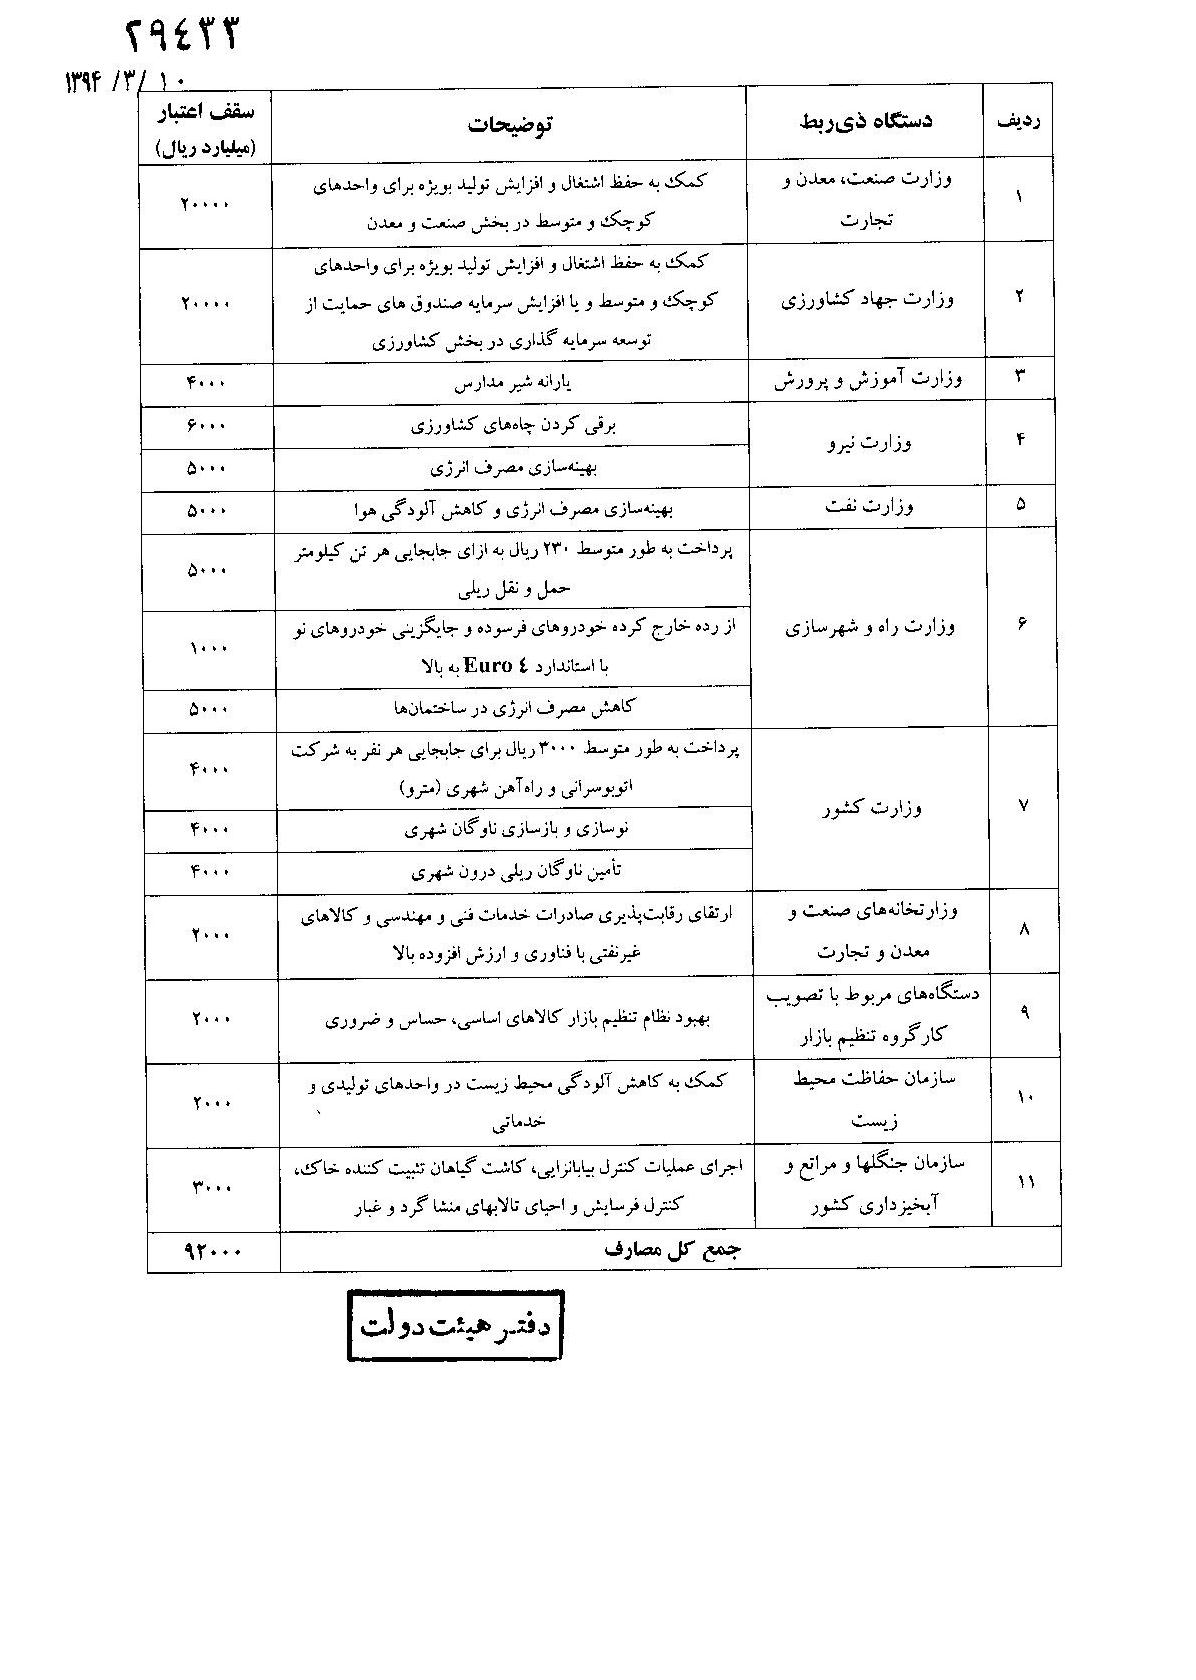 ۲۹٤۳۳
۱۳۹۴/۳/۱۰
ردیف
دستگاه ذی‌ربط
توضیحات
سقف اعتبار
(میلیارد ریال)
۱
وزارت صنعت، معدن و
تجارت
کمک به حفظ اشتغال و افزایش تولید بویژه برای واحدهای
کوچک و متوسط در بخش صنعت و معدن
۲۰۰۰۰
۲
وزارت جهاد کشاورزی
کمک به حفظ اشتغال و افزایش تولید بویژه برای واحدهای
کوچک و متوسط و یا افزایش سرمایه صندوق های حمایت از
توسعه سرمایه گذاری در بخش کشاورزی
۲۰۰۰۰
۳
وزارت آموزش و پرورش
یارانه شیر مدارس
۴۰۰۰
۴
وزارت نیرو
برقی کردن چاه‌های کشاورزی
۶۰۰۰
بهینه‌سازی مصرف انرژی
۵۰۰۰
۵
وزارت نفت
بهینه‌سازی مصرف انرژی و کاهش آلودگی هوا
۵۰۰۰
۶
وزارت راه و شهرسازی
پرداخت به طور متوسط ۲۳۰ ریال به ازای جابجایی هر تن کیلومتر
حمل و نقل ریلی
۵۰۰۰
از رده خارج کرده خودروهای فرسوده و جایگزینی خودروهای نو
با استاندارد Euro ٤ به بالا
۱۰۰۰
کاهش مصرف انرژی در ساختمان‌ها
۵۰۰۰
۷
وزارت کشور
پرداخت به طور متوسط ۳۰۰۰ ریال برای جابجایی هر نفر به شرکت
اتوبوسرانی و راه‌آهن شهری (مترو)
۴۰۰۰
نوسازی و بازسازی ناوگان شهری
۴۰۰۰
تأمین ناوگان ریلی درون شهری
۴۰۰۰
۸
وزارتخانه‌های صنعت و
معدن و تجارت
ارتقای رقابت‌پذیری صادرات خدمات فنی و مهندسی و کالاهای
غیرنفتی با فناوری و ارزش افزوده بالا
۲۰۰۰
۹
دستگاه‌های مربوط با تصویب
کارگروه تنظیم بازار
بهبود نظام تنظیم بازار کالاهای اساسی، حساس و ضروری
۲۰۰۰
۱۰
سازمان حفاظت محیط
زیست
کمک به کاهش آلودگی محیط زیست در واحدهای تولیدی و
خدماتی
۲۰۰۰
۱۱
سازمان جنگلها و مراتع و
آبخیزداری کشور
اجرای عملیات کنترل بیابانزایی، کاشت گیاهان تثبیت کننده خاک،
کنترل فرسایش و احیای تالابهای منشا گرد و غبار
۳۰۰۰
جمع کل مصارف
۹۲۰۰۰
دفتر هیئت دولت